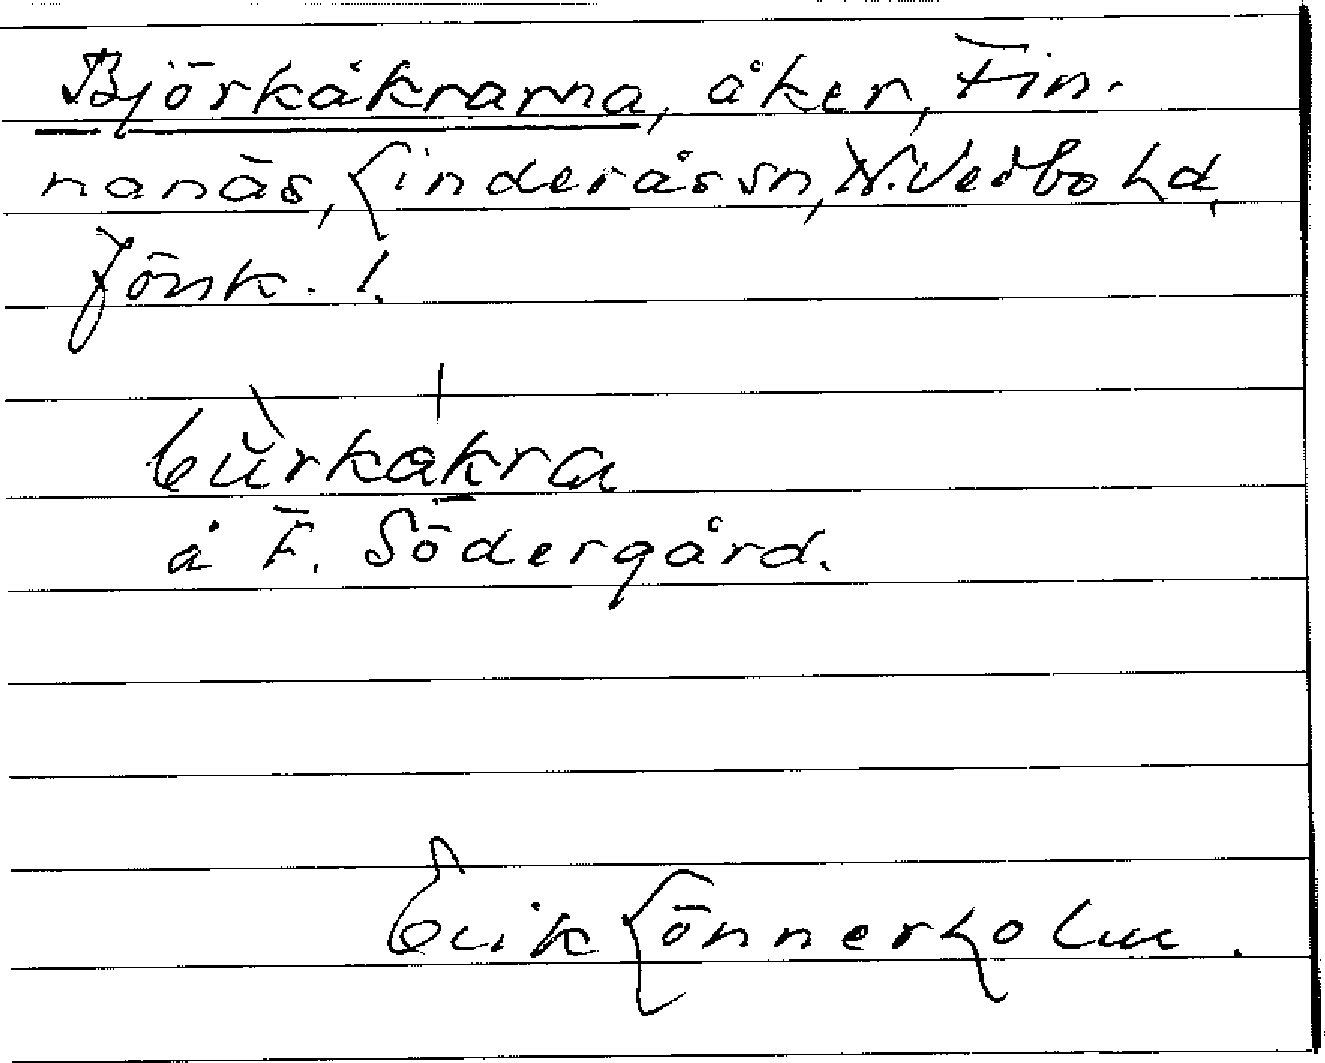 Björkåkrarna, åker, Fin-
nanäs, Linderås sn, N. Vedbo hd,
Jönk. l.
å F. Södergård.
Erik Lönnerholm.